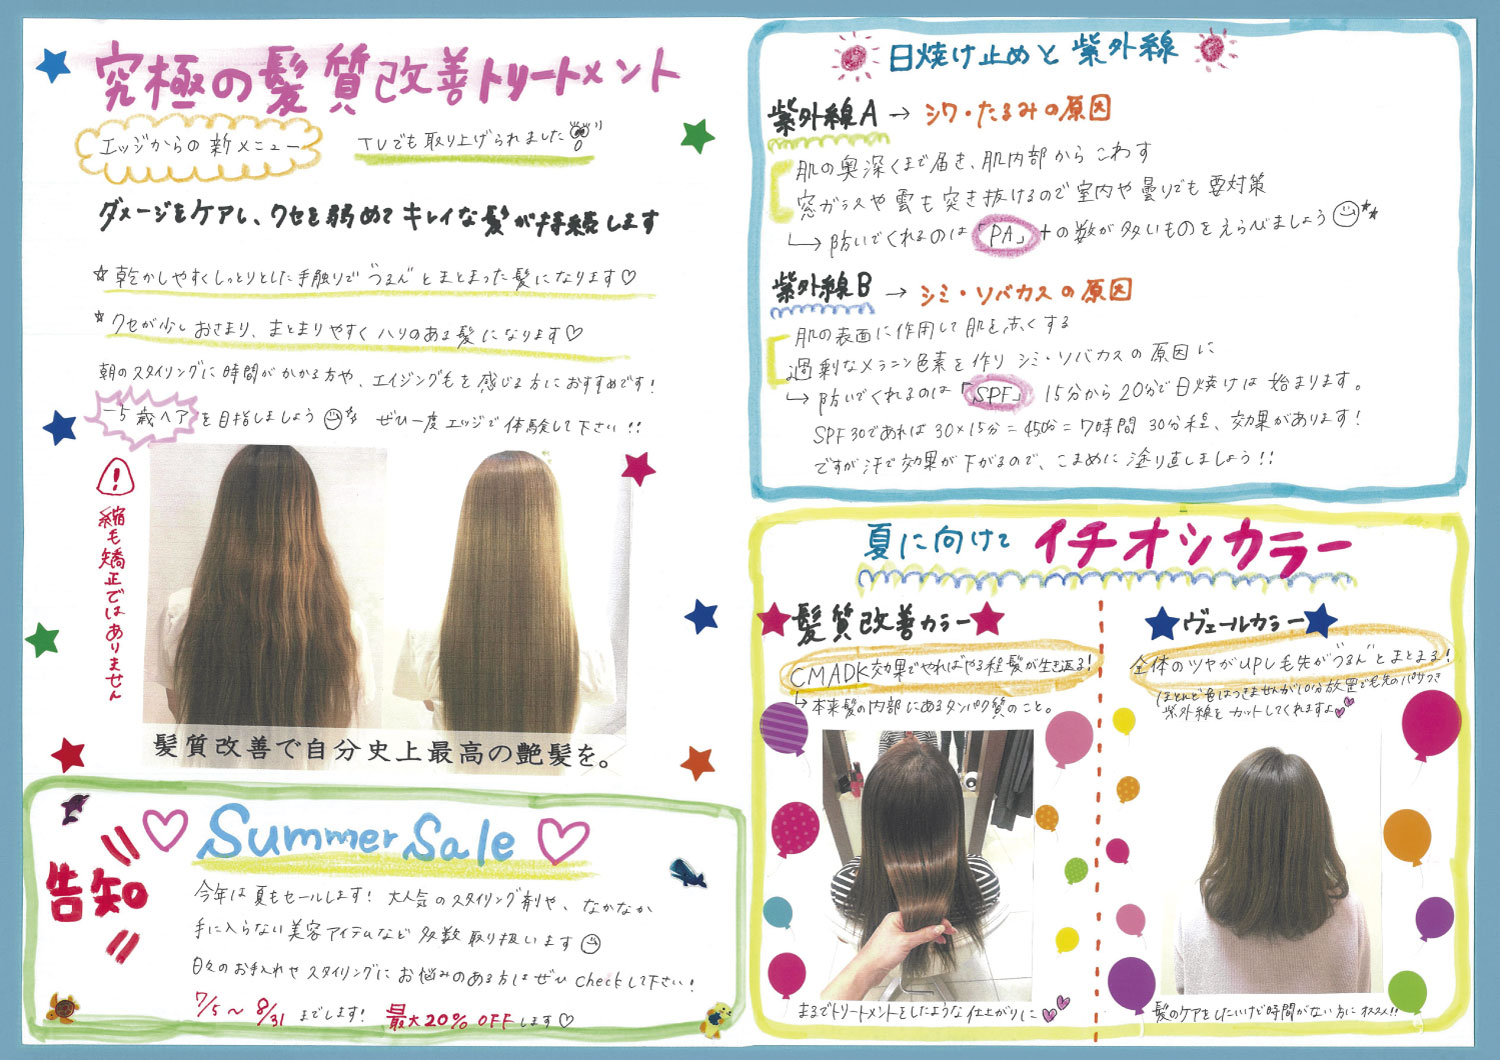 究極の髪質改善トリートメント
エッジからの新メニュー
TVでも取り上げられました
ダメージをケアし、クセを弱めてキレイな髪が持続します
☆乾かしやすくしっとりとした手触りで"うるん"とまとまった髪になります♡
*クセが少しおさまり、まとまりやすくハリのある髪になります♡
朝のスタイリングに時間がかかる方や、エイジング毛を感じる方におすすめです!
−5歳ヘアを目指しましょう ぜひ一度エッジで体験して下さい!!
!
縮毛矯正ではありません
髪質改善で自分史上最高の艶髪を。
告知
♡ Summer Sale ♡
今年は夏もセールします! 大人気のスタイリング剤や、なかなか
手に入らない美容アイテムなど多数取り扱います
日々のお手入れやスタイリングにお悩みのある方はぜひcheckして下さい!
7/5〜8/31までします! 最大20%OFFします♡
日焼け止めと紫外線
紫外線A → シワ・たるみの原因
肌の奥深くまで届き、肌内部からこわす
窓ガラスや雲も突き抜けるので室内や曇りでも要対策
↳防いでくれるのは「PA」+の数が多いものをえらびましょう
紫外線B → シミ・ソバカスの原因
肌の表面に作用して肌を赤くする
過剰なメラニン色素を作りシミ・ソバカスの原因に
↳防いでくれるのは「SPF」 15分から20分で日焼けは始まります。
SPF30であれば30×15分=450分=7時間30分程、効果があります!
ですが汗で効果が下がるので、こまめに塗り直しましょう!!
夏に向けて イチオシカラー
★髪質改善カラー★
CMADK効果でやればやる程髪が生き返る!
↳本来髪の内部にあるタンパク質のこと。
まるでトリートメントをしたような仕上がりに
★ヴェールカラー★
全体のツヤがUPし毛先が"うるん"とまとまる!
ほとんど色はつきませんが10分放置で毛先のパサつき
紫外線をカットしてくれますよ
髪のケアをしたいけど時間がない方にオススメ!!